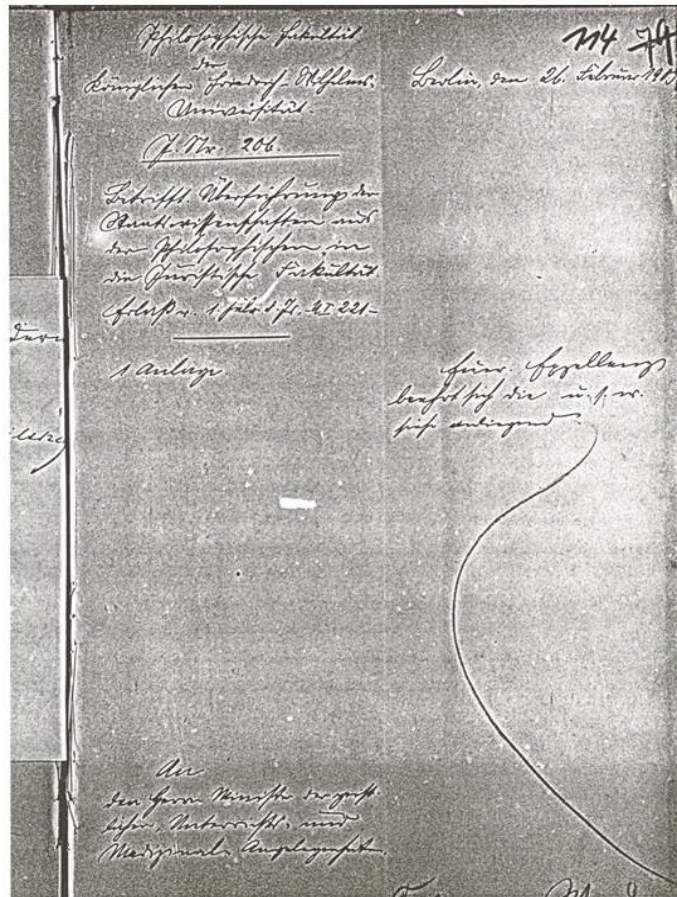 114
Philosophische Fakultät
der
Königlichen Friedrich-Wilhelms-
Universität.
Berlin, den 26. Februar
J. Nr. 206.
Betrifft Überführung der
Staatswissenschaften aus
der Philosophischen in
die Juristische Fakultät.
Erlaß v. 1. Febr. d. Js. UI 221-
1 Anlage
Euer. Exzellenz
beehrt sich die u. s. w.
siehe anliegend
An
den Herrn Minister der geist-
lichen, Unterrichts- und
Medizinal-Angelegenheiten.